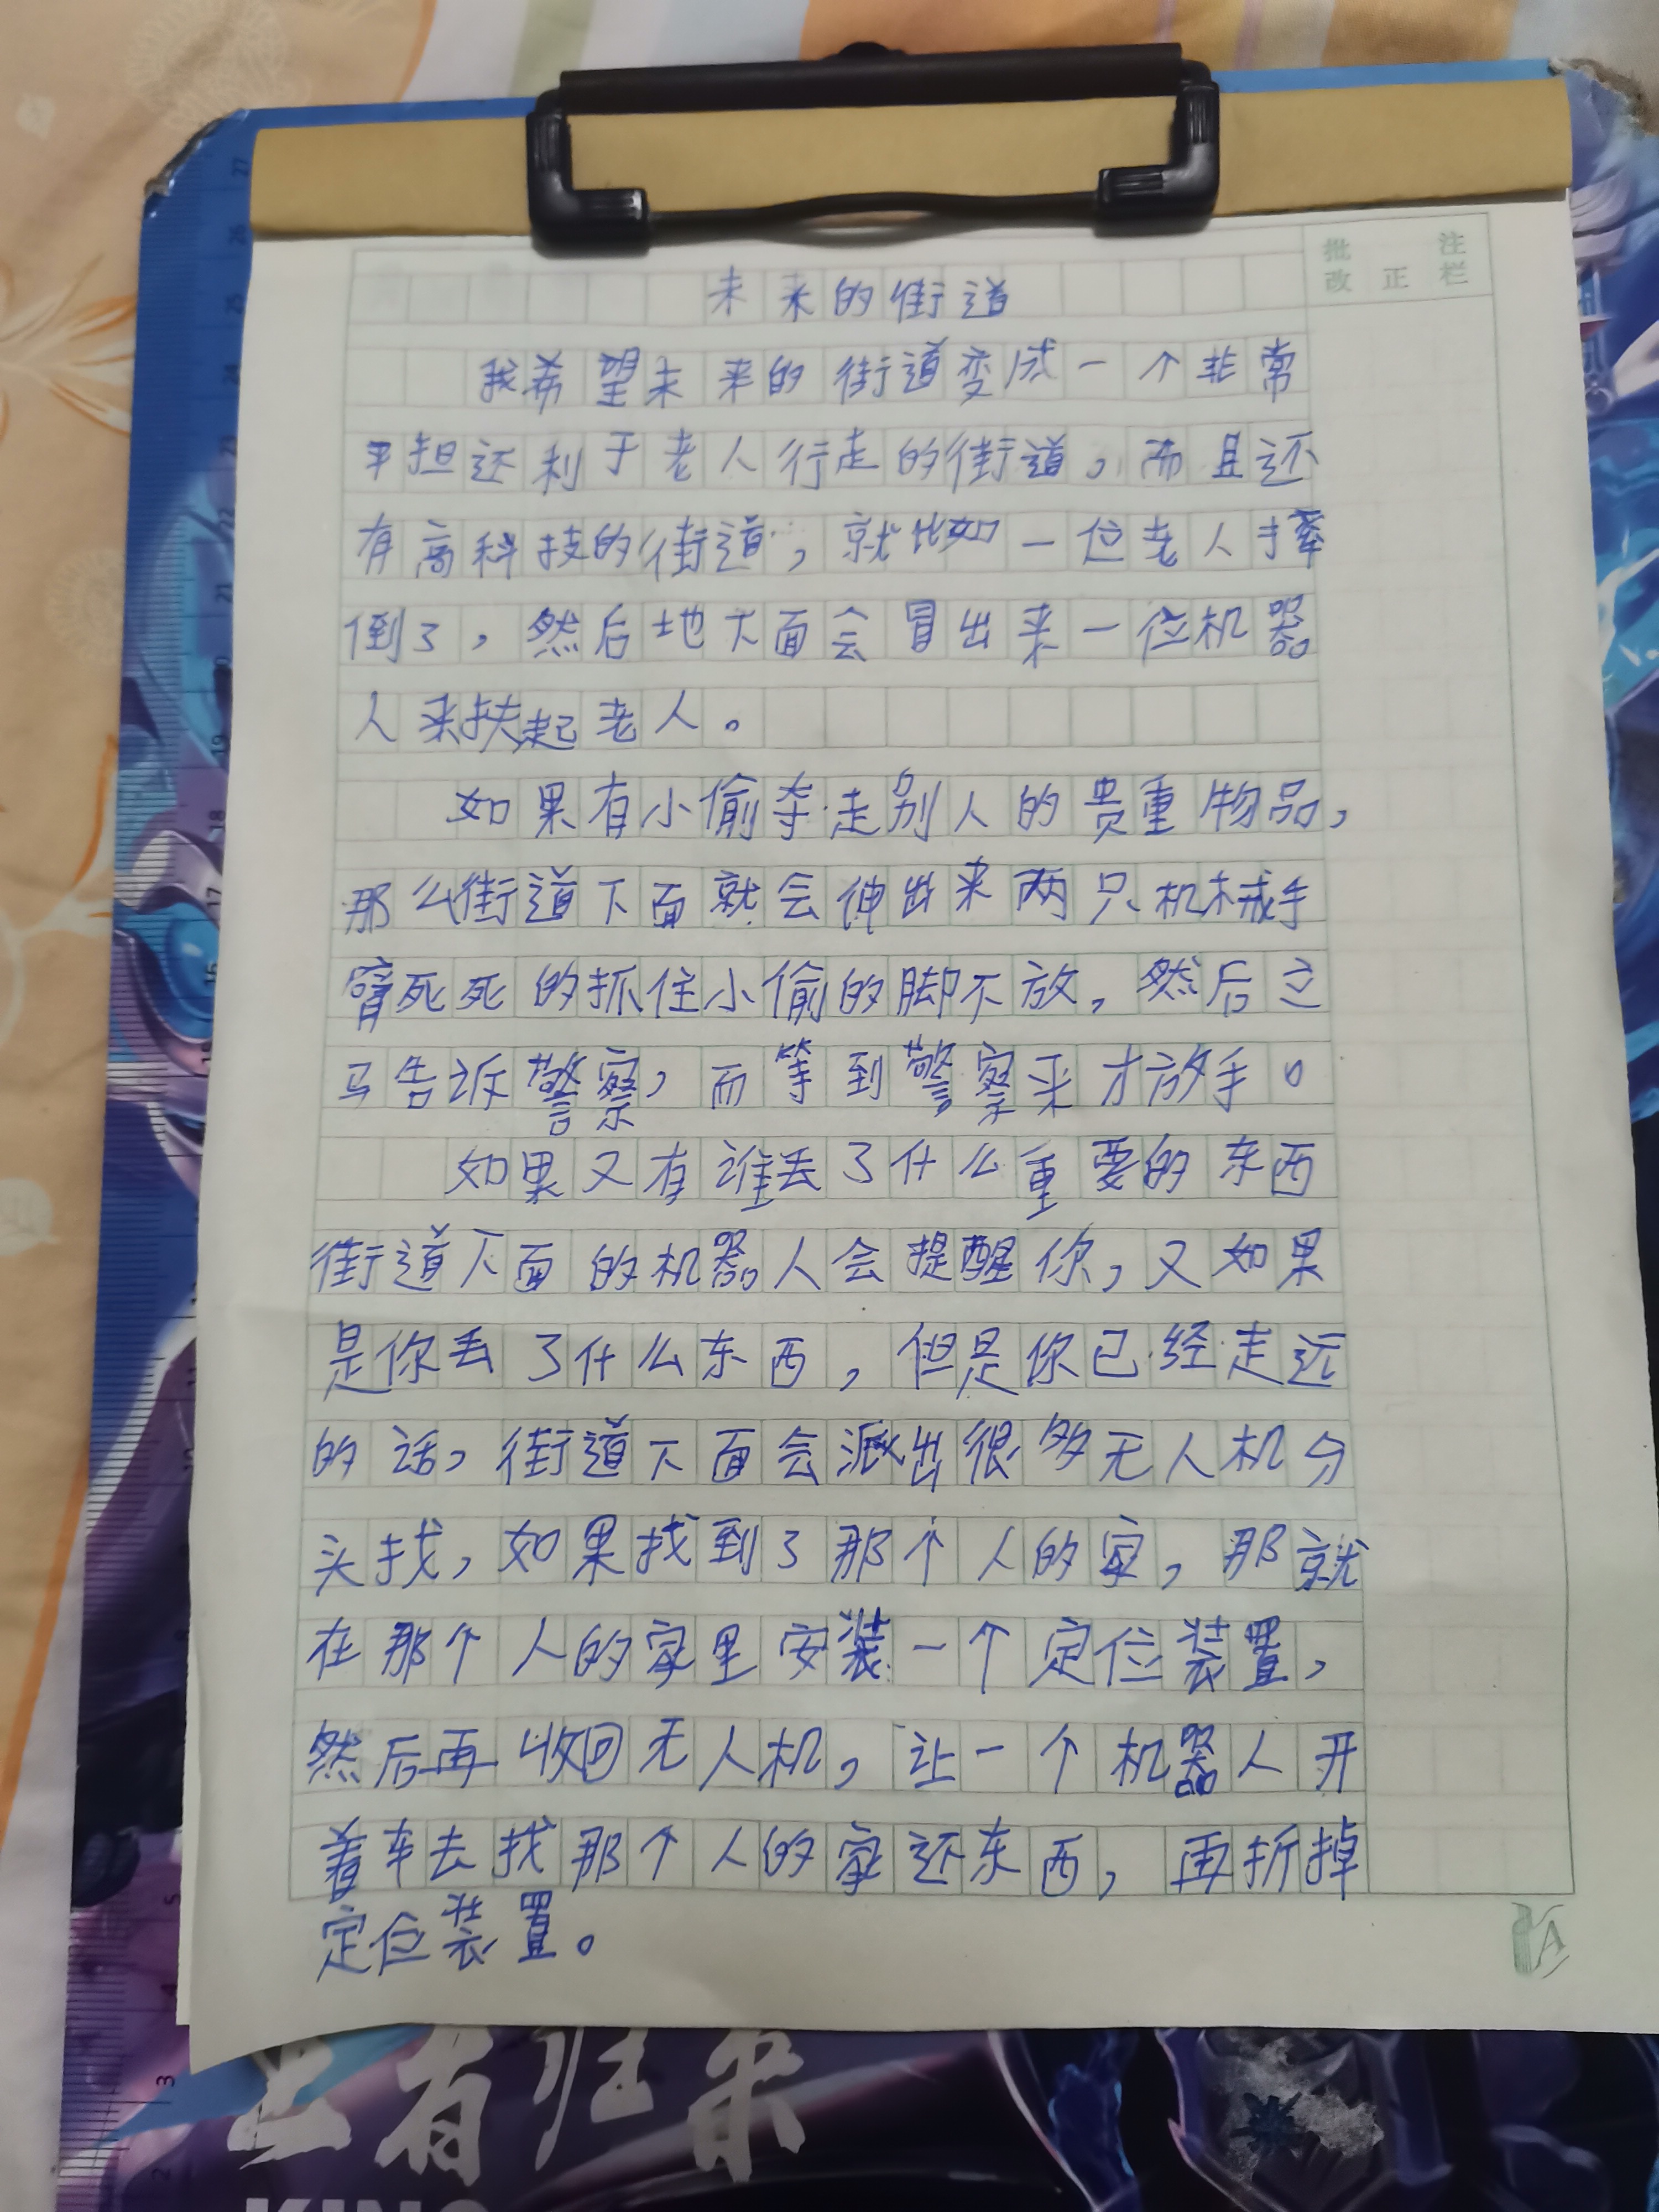 批 注
改 正 栏
未来的街道
我希望未来的街道变成一个非常
平担还利于老人行走的街道，而且还
有高科技的街道，就比如一位老人摔
倒了，然后地下面会冒出来一位机器
人来扶起老人。
如果有小偷夺走别人的贵重物品，
那么街道下面就会伸出来两只机械手
臂死死的抓住小偷的脚不放，然后立
马告诉警察，而等到警察来才放手。
如果又有谁丢了什么重要的东西
街道下面的机器人会提醒你，又如果
是你丢了什么东西，但是你已经走远
的话，街道下面会派出很多无人机分
头找，如果找到了那个人的家，那就
在那个人的家里安装一个定位装置，
然后再收回无人机，让一个机器人开
着车去找那个人的家还东西，再折掉
定位装置。
王者归来
KING